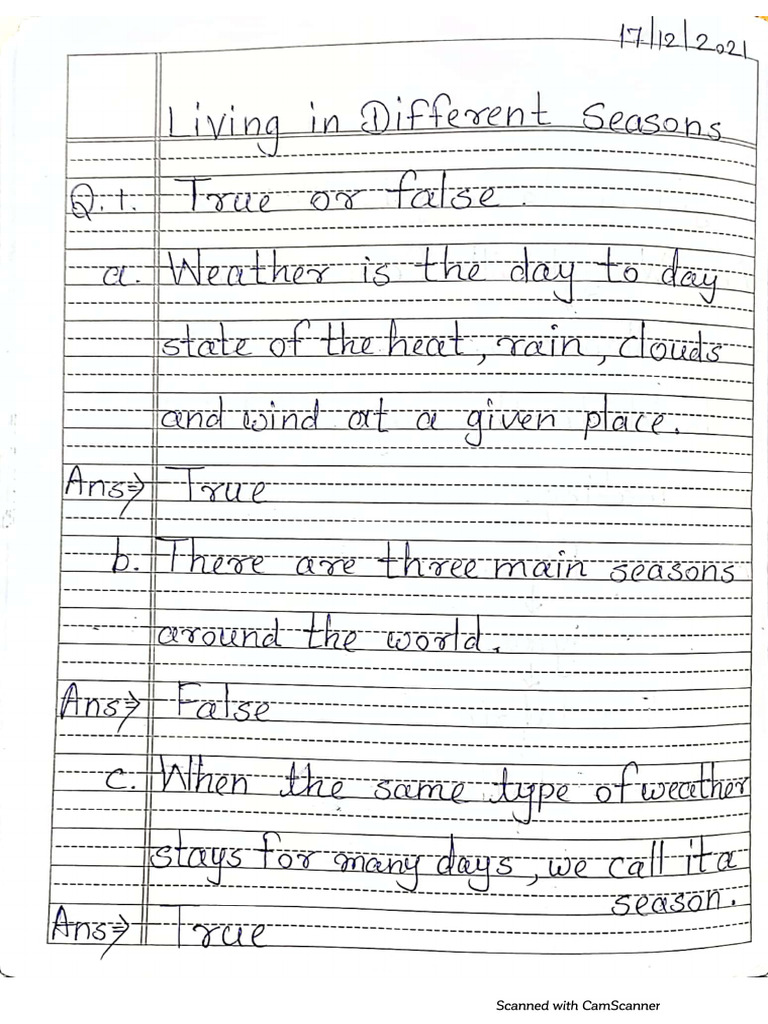 17/12/2021
Living in Different Seasons
Q.1. True or false.
a. Weather is the day to day
state of the heat, rain, clouds
and wind at a given place.
Ans⇒ True
b. There are three main seasons
around the world.
Ans⇒ False
c. When the same type of weather
stays for many days, we call it a
season.
Ans⇒ True
Scanned with CamScanner